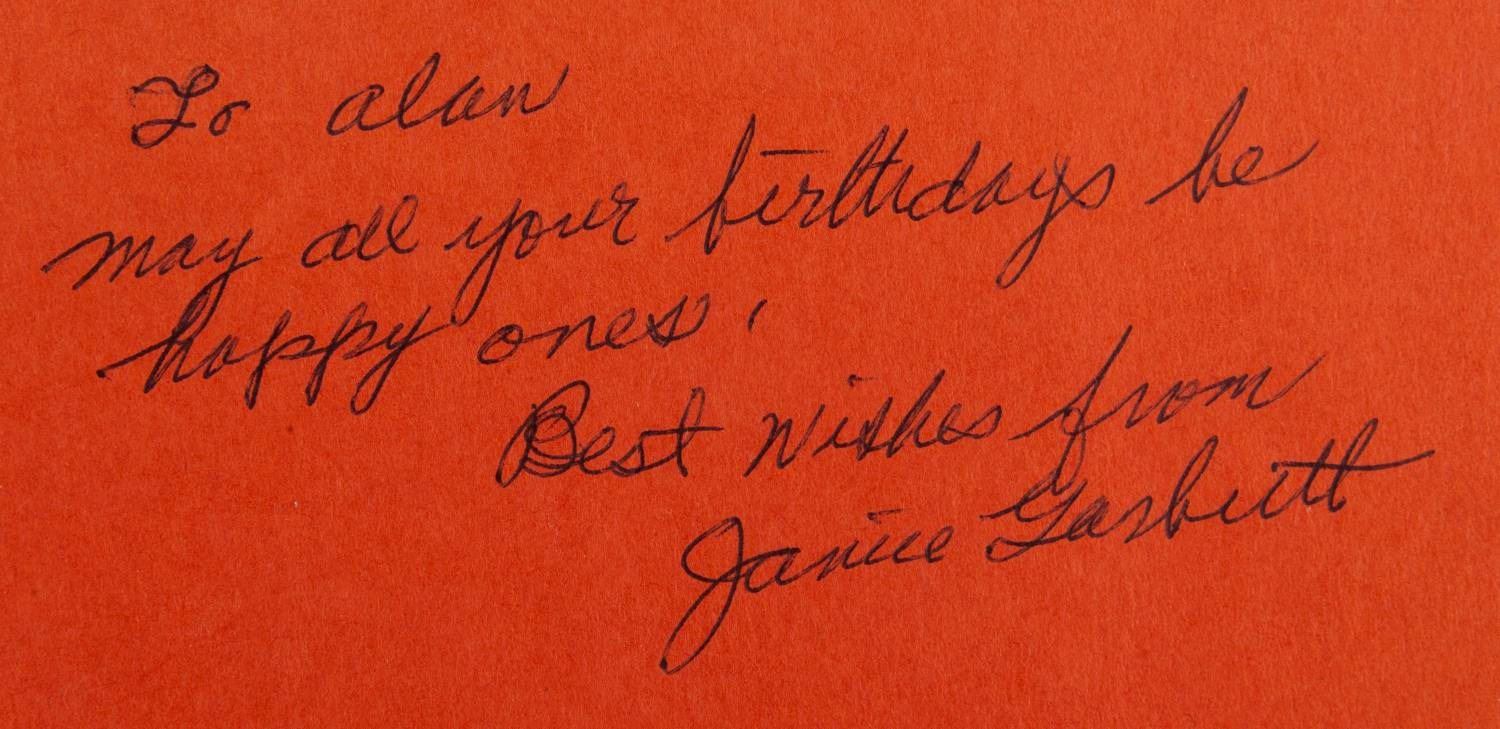 To alan
may all your birthdays be
happy ones.
Best Wishes from
Janice